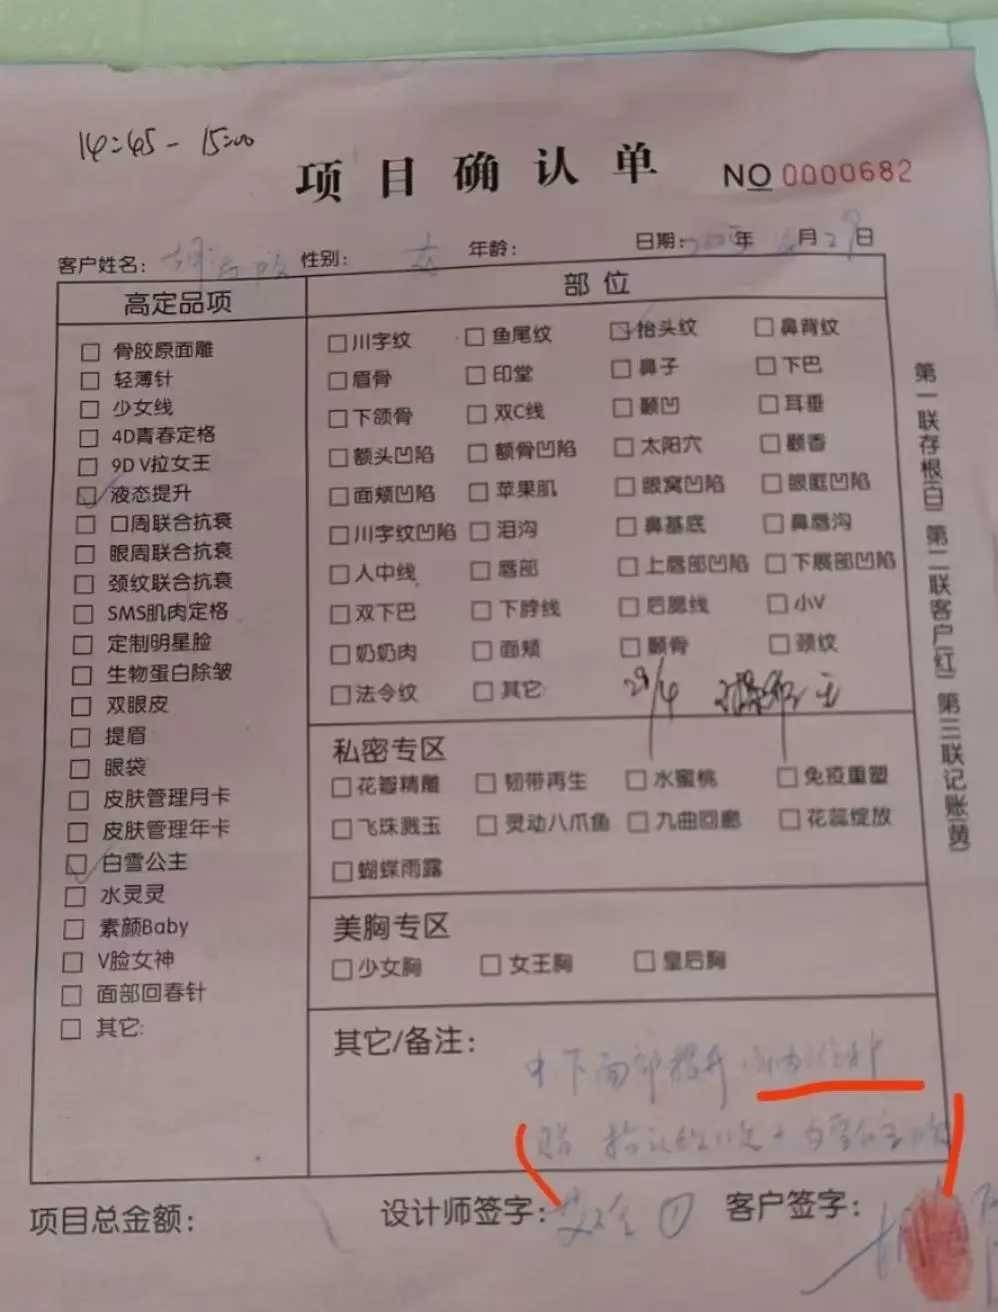 14:45 - 15:00
项目确认单 NO 0000682
客户姓名: 性别: 年龄: 日期: 年 月29日
高定品项
部位
骨胶原面雕
轻薄针
少女线
4D青春定格
9D V拉女王
液态提升
口周联合抗衰
眼周联合抗衰
颈纹联合抗衰
SMS肌肉定格
定制明星脸
生物蛋白除皱
双眼皮
提眉
眼袋
皮肤管理月卡
皮肤管理年卡
白雪公主
水灵灵
素颜Baby
V脸女神
面部回春针
其它:
川字纹 鱼尾纹 抬头纹 鼻背纹
眉骨 印堂 鼻子 下巴
下颌骨 双C线 颞凹 耳垂
额头凹陷 额骨凹陷 太阳穴 颧香
面颊凹陷 苹果肌 眼窝凹陷 眼眶凹陷
川字纹凹陷 泪沟 鼻基底 鼻唇沟
人中线 唇部 上唇部凹陷 下展部凹陷
双下巴 下脖线 后腮线 小V
奶奶肉 面颊 颧骨 颈纹
法令纹 其它: 29/4
私密专区
花瓣精雕 韧带再生 水蜜桃 免疫重塑
飞珠溅玉 灵动八爪鱼 九曲回廊 花蕊绽放
蝴蝶雨露
美胸专区
少女胸 女王胸 皇后胸
其它/备注:
中下面部提升
项目总金额: 设计师签字: 客户签字:
第一联存根(白) 第二联客户(红) 第三联记账(黄)